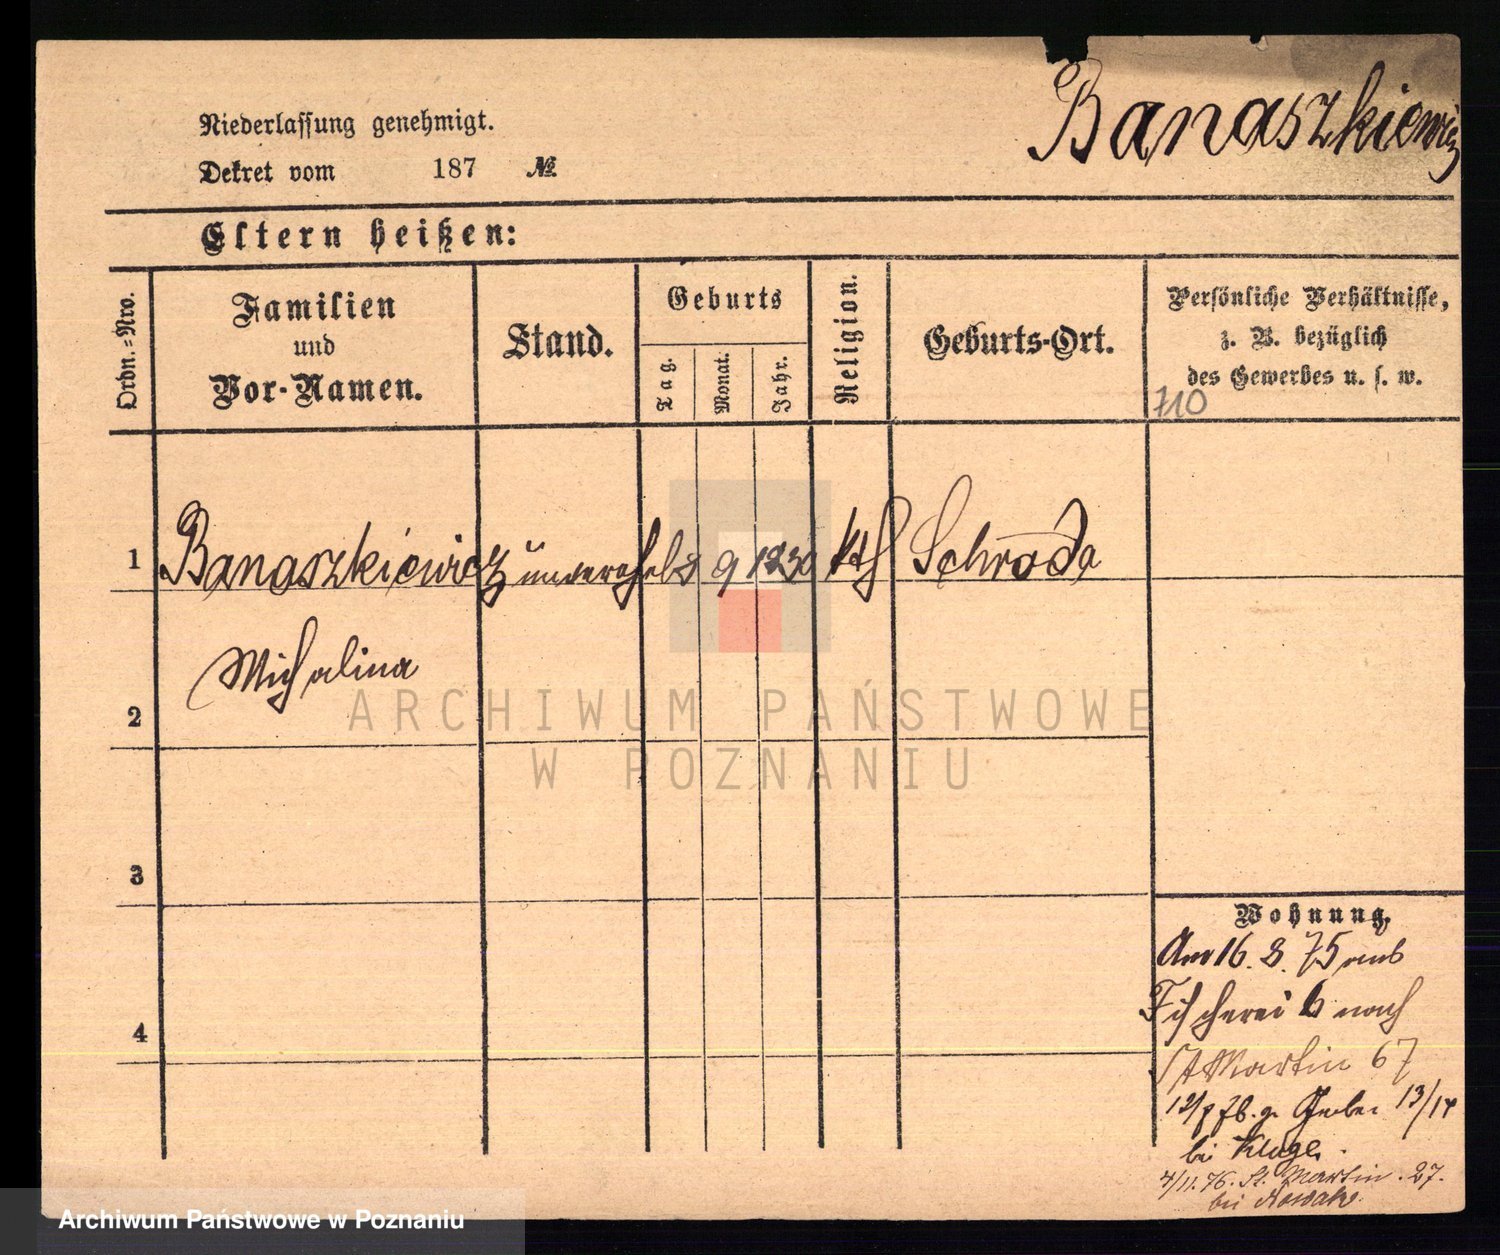 Banaszkiewicz
Niederlassung genehmigt.
Dekret vom 187 №
Eltern heißen:
Ordn.-Nro.
Familien
und
Vor-Namen.
Stand.
Geburts
Tag.
Monat.
Jahr.
Religion.
Geburts-Ort.
Persönliche Verhältnisse,
z. B. bezüglich
des Gewerbes u. s. w.
710
1 Banaszkiewicz unverehel 8 9 1830 kth Schroda
Michalina
2
3
4
Wohnung.
Am 16. 8. 75 aus
Fischerei 6 nach
St Martin 67
12/7 76. Gerber 13/14
bei Kluge.
4/11. 76. St. Martin. 27.
bei Nowak.
ARCHIWUM PAŃSTWOWE
W POZNANIU
Archiwum Państwowe w Poznaniu